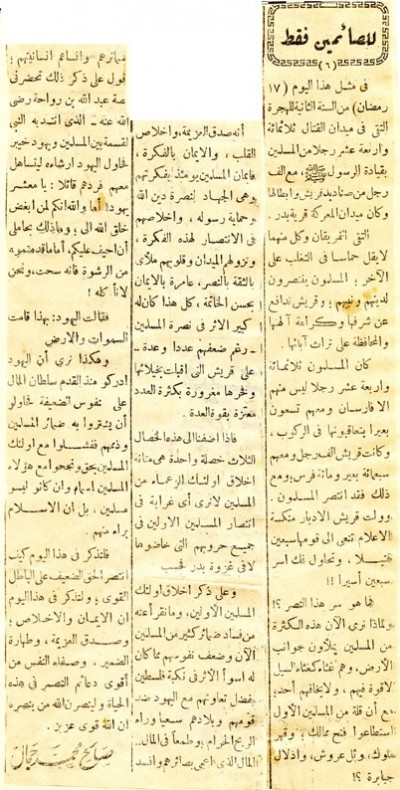 للصائمين فقط
(٦)
فى مثل هذا اليوم (١٧
رمضان) من السنة الثانية للهجرة
التقى فى ميدان القتال ثلاثمائة
واربعة عشر رجلا من المسلمين
بقيادة الرسول ﷺ، مع الف
رجل من صناديد قريش وابطالها
وكان ميدان المعركة قرية بدر.
التقى الفريقان وكل منهما
لا يقل حماسا فى التغلب على
الآخر؛ المسلمون ينصرون
لدينهم ونبيهم؛ وقريش تدافع
عن شرفها وكرامة آلهتها
والمحافظة على تراث آبائها.
كان المسلمون ثلاثمائة
واربعة عشر رجلا ليس منهم
الا فارسان ومعهم تسعون
بعيرا يتعاقبونها فى الركوب،
وكانت قريش الف رجل ومعهم
سبعمائة بعير ومائة فرس ومع
ذلك فقد انتصر المسلمون.
وولت قريش الادبار منكسة
الاعلام تنعى الى قومها سبعين
قتيلا، وتحاول فك اسر
سبعين أسيرا!!
فما هو سر هذا النصر؟!
ولماذا نرى الآن هذه الكثرة
من المسلمين يملأون جوانب
الأرض، وهم غثاء كغثاء السيل
لا قوة فيهم، ولا يخافهم أحد؛
مع أن قلة من المسلمين الأول
استطاعوا فتح ممالك؛ وقهر
ملوك، وثل عروش، واذلال
جبابرة؟!
أنه صدق العزيمة، واخلاص
القلب، والايمان بالفكرة،
فايمان المسلمين يومئذ بفكرتهم
وهى الجهاد لنصرة دين الله
وحماية رسوله، واخلاصهم
فى الانتصار لهذه الفكرة،
ونزولهم الميدان وقلوبهم ملأى
بالثقة بالنصر، عامرة بالايمان
بحسن الخاتمة، كل هذا كان له
كبير الاثر فى نصرة المسلمين
- رغم ضعفهم عددا وعدة -
على قريش التى اقبلت بخيلائها
وفخرها مغرورة بكثرة العدد
معتزة بقوة العدة.
فاذا اضفنا الى هذه الخصال
الثلاث خصلة واحدة هى متانة
اخلاق اولئك الزعماء من
المسلمين لا نرى أى غرابة فى
انتصار المسلمين الاولين فى
جميع حروبهم التى خاضوها
لا فى غزوة بدر فحسب
وعلى ذكر اخلاق اولئك
المسلمين الأولين، وما نقرأ عنه
من فساد ضمائر كثير من المسلمين
الآن وضعف نفوسهم مما كان
له اسوأ الأثر فى نكبة فلسطين
بفضل تعاونهم مع اليهود ضد
قومهم وبلادهم سعيا وراء
الربح الحرام وطمعا فى المال..
المال الذى اعمى بصائرهم وافسد
ضمائرهم وانساهم انسانيتهم؛
فعلى ذكر ذلك تحضرنى
قصة عبد الله بن رواحة رضى
الله عنه - الذى انتدبه النبى
لقسمة بين المسلمين ويهود خيبر
فحاول اليهود ارشاءه ليتساهل
معهم فردهم قائلا: يا معشر
يهود! أما والله انكم لمن ابغض
خلق الله الى؛ وما ذلك بحاملى
أن احيف عليكم، أما ما قدمتموه
من الرشوة فانه سحت، ونحن
لا نأكله!
فقالت اليهود: بهذا قامت
السموات والارض
وهكذا نرى أن اليهود
ادركوا منذ القدم سلطان المال
على نفوس الضعيفة فحاولوا
أن يشتروا به ضمائر المسلمين
وذممهم ففشلوا مع اولئك
المسلمين بحق ونجحوا مع هؤلاء
المسلمين اسما وان كانوا ليسوا
بمسلمين، بل ان الاسلام
براء منهم.
فلنذكر فى هذا اليوم كيف
انتصر الحق الضعيف على الباطل
القوى؛ ولنذكر فى هذا اليوم
ان الايمان والاخلاص؛
وصدق العزيمة، وطهارة
الضمير. وصفاء النفس من
أقوى دعائم النصر فى هذه
الحياة ولينصرن الله من ينصره
ان الله قوى عزيز.
صالح محمد جمال